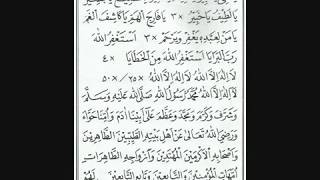 يَا لَطِيْفُ يَا خَبِيْرُ ×٣ يَا فَارِجَ الْهَمِّ يَا كَاشِفَ الْغَمِّ
يَا مَنْ لِعَبْدِهِ يَغْفِرُ وَيَرْحَمُ ×٣ اَسْتَغْفِرُ اللّٰهَ
رَبَّ الْبَرَايَا اَسْتَغْفِرُ اللّٰهَ مِنَ الْخَطَايَا ×٤
لَا اِلٰهَ اِلَّا اللّٰهُ لَا اِلٰهَ اِلَّا اللّٰهُ ×٢٥/ ×٥٠
لَا اِلٰهَ اِلَّا اللّٰهُ مُحَمَّدٌ رَسُوْلُ اللّٰهِ صَلَّى اللّٰهُ عَلَيْهِ وَسَلَّمَ
وَشَرَّفَ وَكَرَّمَ وَمَجَّدَ وَعَظَّمَ عَلَى اَبِيْنَا اٰدَمَ وَاُمِّنَا حَوَّاءَ
وَرَضِيَ اللّٰهُ تَعَالٰى عَنْ اَهْلِ بَيْتِهِ الطَّيِّبِيْنَ الطَّاهِرِيْنَ
وَاَصْحَابِهِ الْاَكْرَمِيْنَ الْمُهْتَدِيْنَ وَاَزْوَاجِهِ الطَّاهِرَاتِ
اُمَّهَاتِ الْمُؤْمِنِيْنَ وَالتَّابِعِيْنَ وَتَابِعِ التَّابِعِيْنَ لَهُمْ